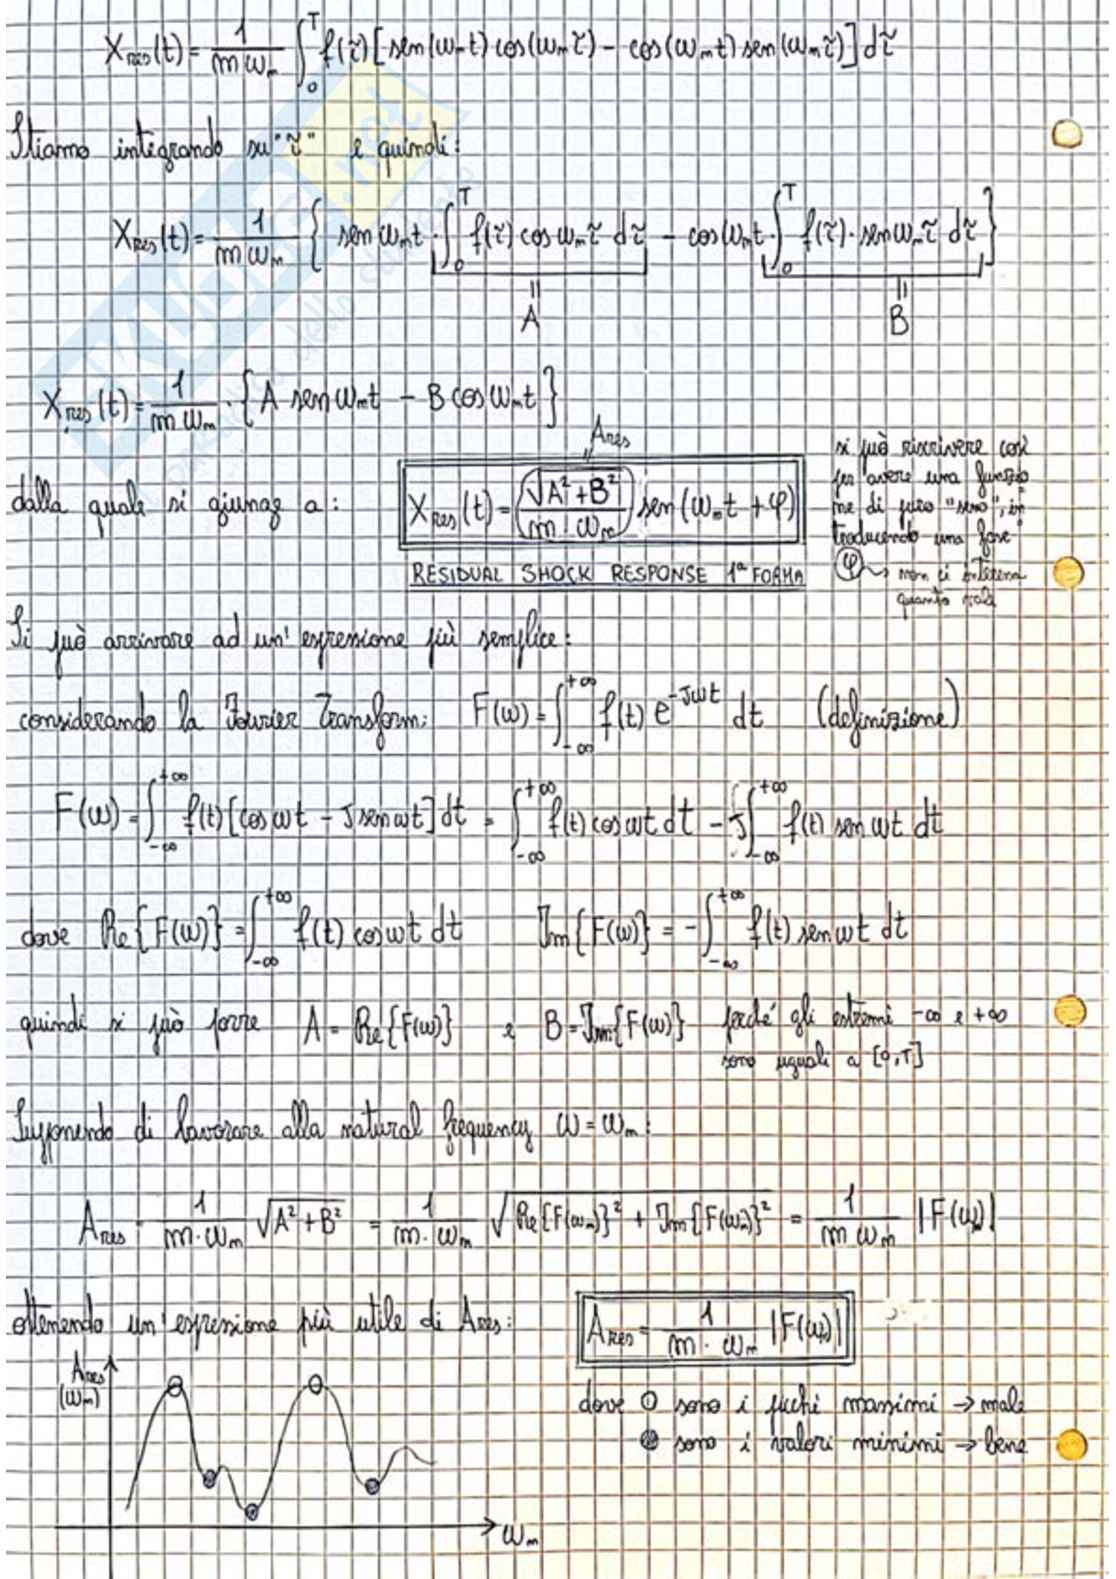 X_res(t) = 1/(m ω_n) ∫_0^T f(τ̃) [sen(ω_n t) cos(ω_n τ̃) - cos(ω_n t) sen(ω_n τ̃)] dτ̃
Stiamo integrando su "τ̃" e quindi:
X_res(t) = 1/(m ω_n) { sen ω_n t · ∫_0^T f(τ̃) cos ω_n τ̃ dτ̃ - cos ω_n t · ∫_0^T f(τ̃) · sen ω_n τ̃ dτ̃ }
= A = B
X_res(t) = 1/(m ω_n) · { A sen ω_n t - B cos ω_n t }
A_res
dalla quale si giunge a: X_res(t) = (√(A² + B²) / (m · ω_n)) sen(ω_n t + φ)
RESIDUAL SHOCK RESPONSE 1ª FORMA
si può riscrivere così
per avere una funzio
ne di puro "seno", in
troducendo una fase
φ → non ci interessa
quanto vale
Si può arrivare ad un' espressione più semplice:
considerando la Fourier Transform: F(ω) = ∫_{-∞}^{+∞} f(t) e^{-Jωt} dt (definizione)
F(ω) = ∫_{-∞}^{+∞} f(t) [cos ωt - J sen ωt] dt = ∫_{-∞}^{+∞} f(t) cos ωt dt - J ∫_{-∞}^{+∞} f(t) sen ωt dt
dove Re{F(ω)} = ∫_{-∞}^{+∞} f(t) cos ωt dt Im{F(ω)} = - ∫_{-∞}^{+∞} f(t) sen ωt dt
quindi si può porre A = Re{F(ω)} e B = Im{F(ω)} perché gli estremi -∞ e +∞
sono uguali a [0,T]
Supponendo di lavorare alla natural frequency ω = ω_n:
A_res = 1/(m · ω_n) √(A² + B²) = 1/(m · ω_n) √(Re{F(ω_n)}² + Im{F(ω_n)}²) = 1/(m ω_n) |F(ω)|
ottenendo un' espressione più utile di A_res: A_res = 1/(m · ω_n) |F(ω)|
A_res
(ω_n)
dove O sono i picchi massimi → male
● sono i valori minimi → bene
ω_n